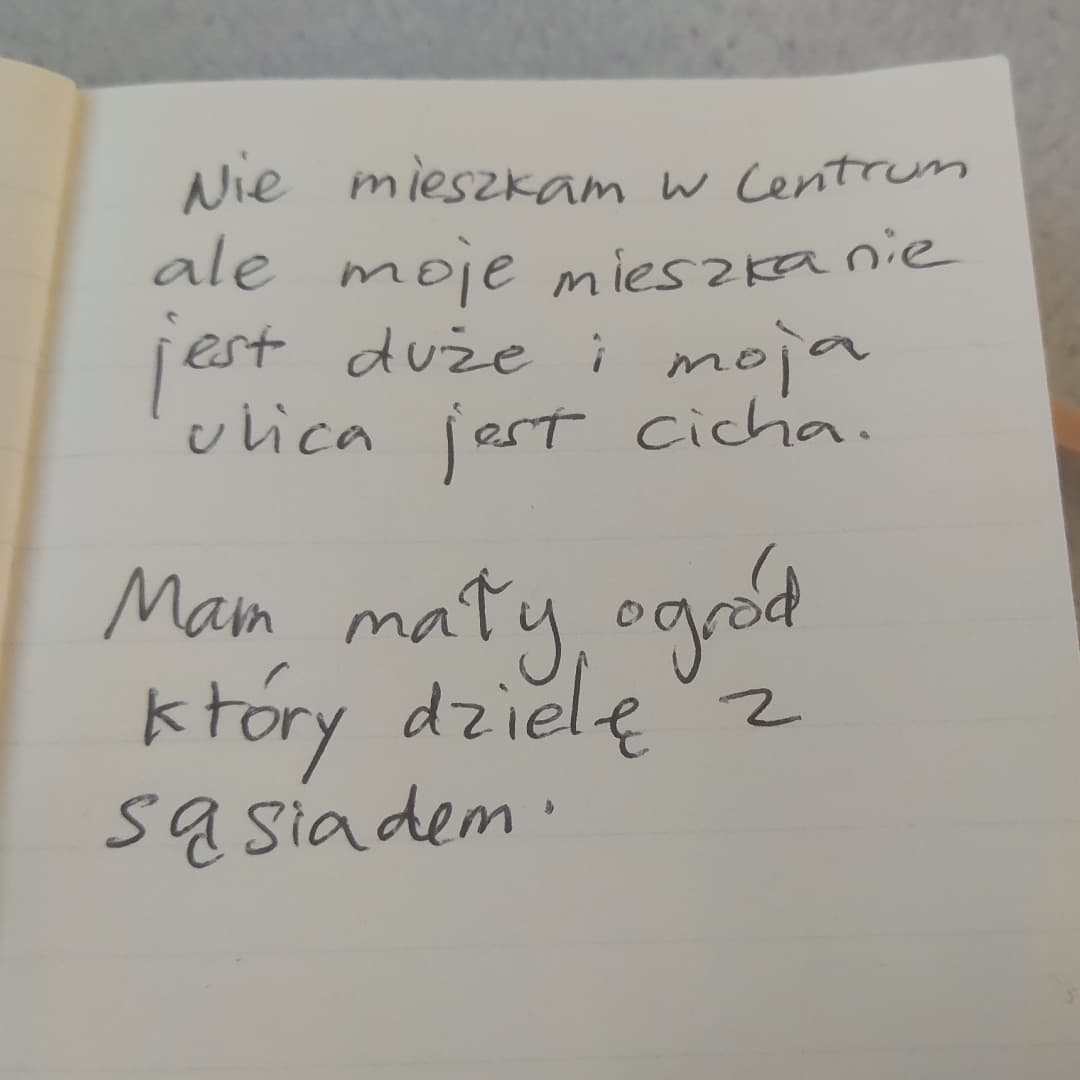 Nie mieszkam w centrum
ale moje mieszkanie
jest duże i moja
ulica jest cicha.
Mam mały ogród
który dzielę z
sąsiadem.